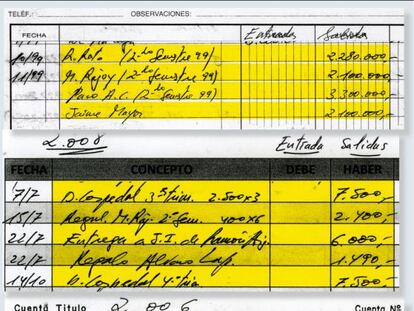 TELÉF.: OBSERVACIONES:
FECHA Entradas Salidas
10/99 R. Rato (2º Semestre 99) 2.280.000,-
11/99 M. Rajoy (2º Semestre 99) 2.100.000,-
Paco A.C. (2º Semestre 99) 3.300.000,-
Jaime Mayor 2.100.000,-
2.008 Entrada Salidas
FECHA CONCEPTO DEBE HABER
7/7 D. Cospedal 3º trim. 2.500x3 7.500,-
15/7 Regul. M. Raj. 2º Sem. 400x6 2.400,-
22/7 Entrega a J.I. de 6.000,-
22/7 Regalo Alvaro Lap. 1.490,-
14/10 D. Cospedal 4º trim. 7.500,-
Cuenta Titulo 2.006 Cuenta Nº